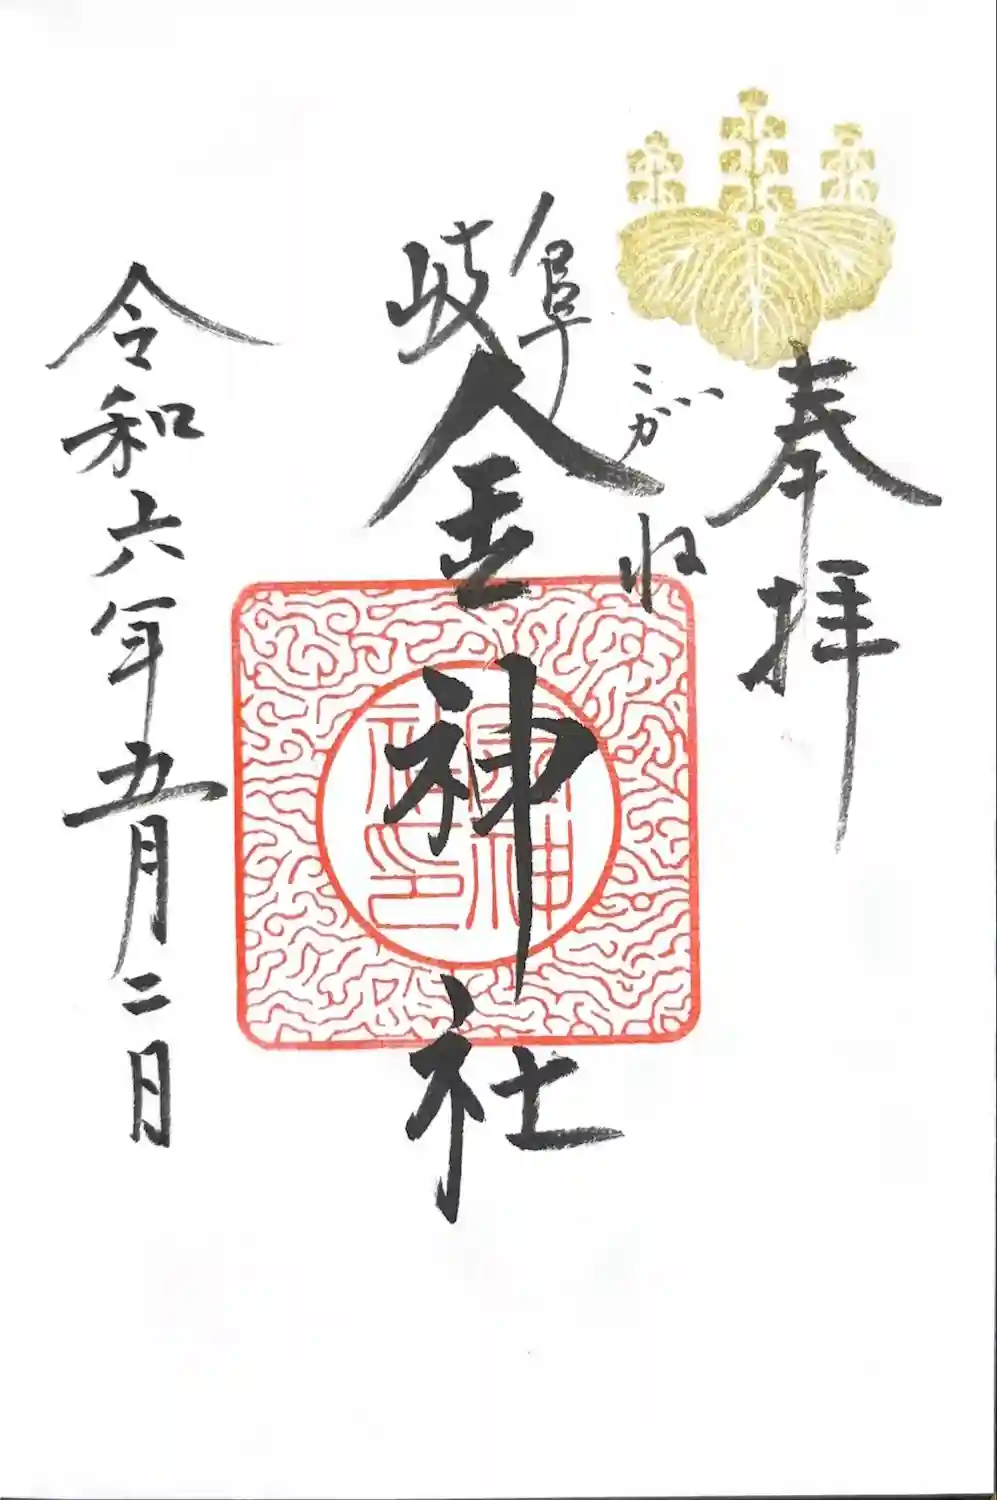 奉拝
こがね
岐阜
金神社
金神社印
令和六年五月二日